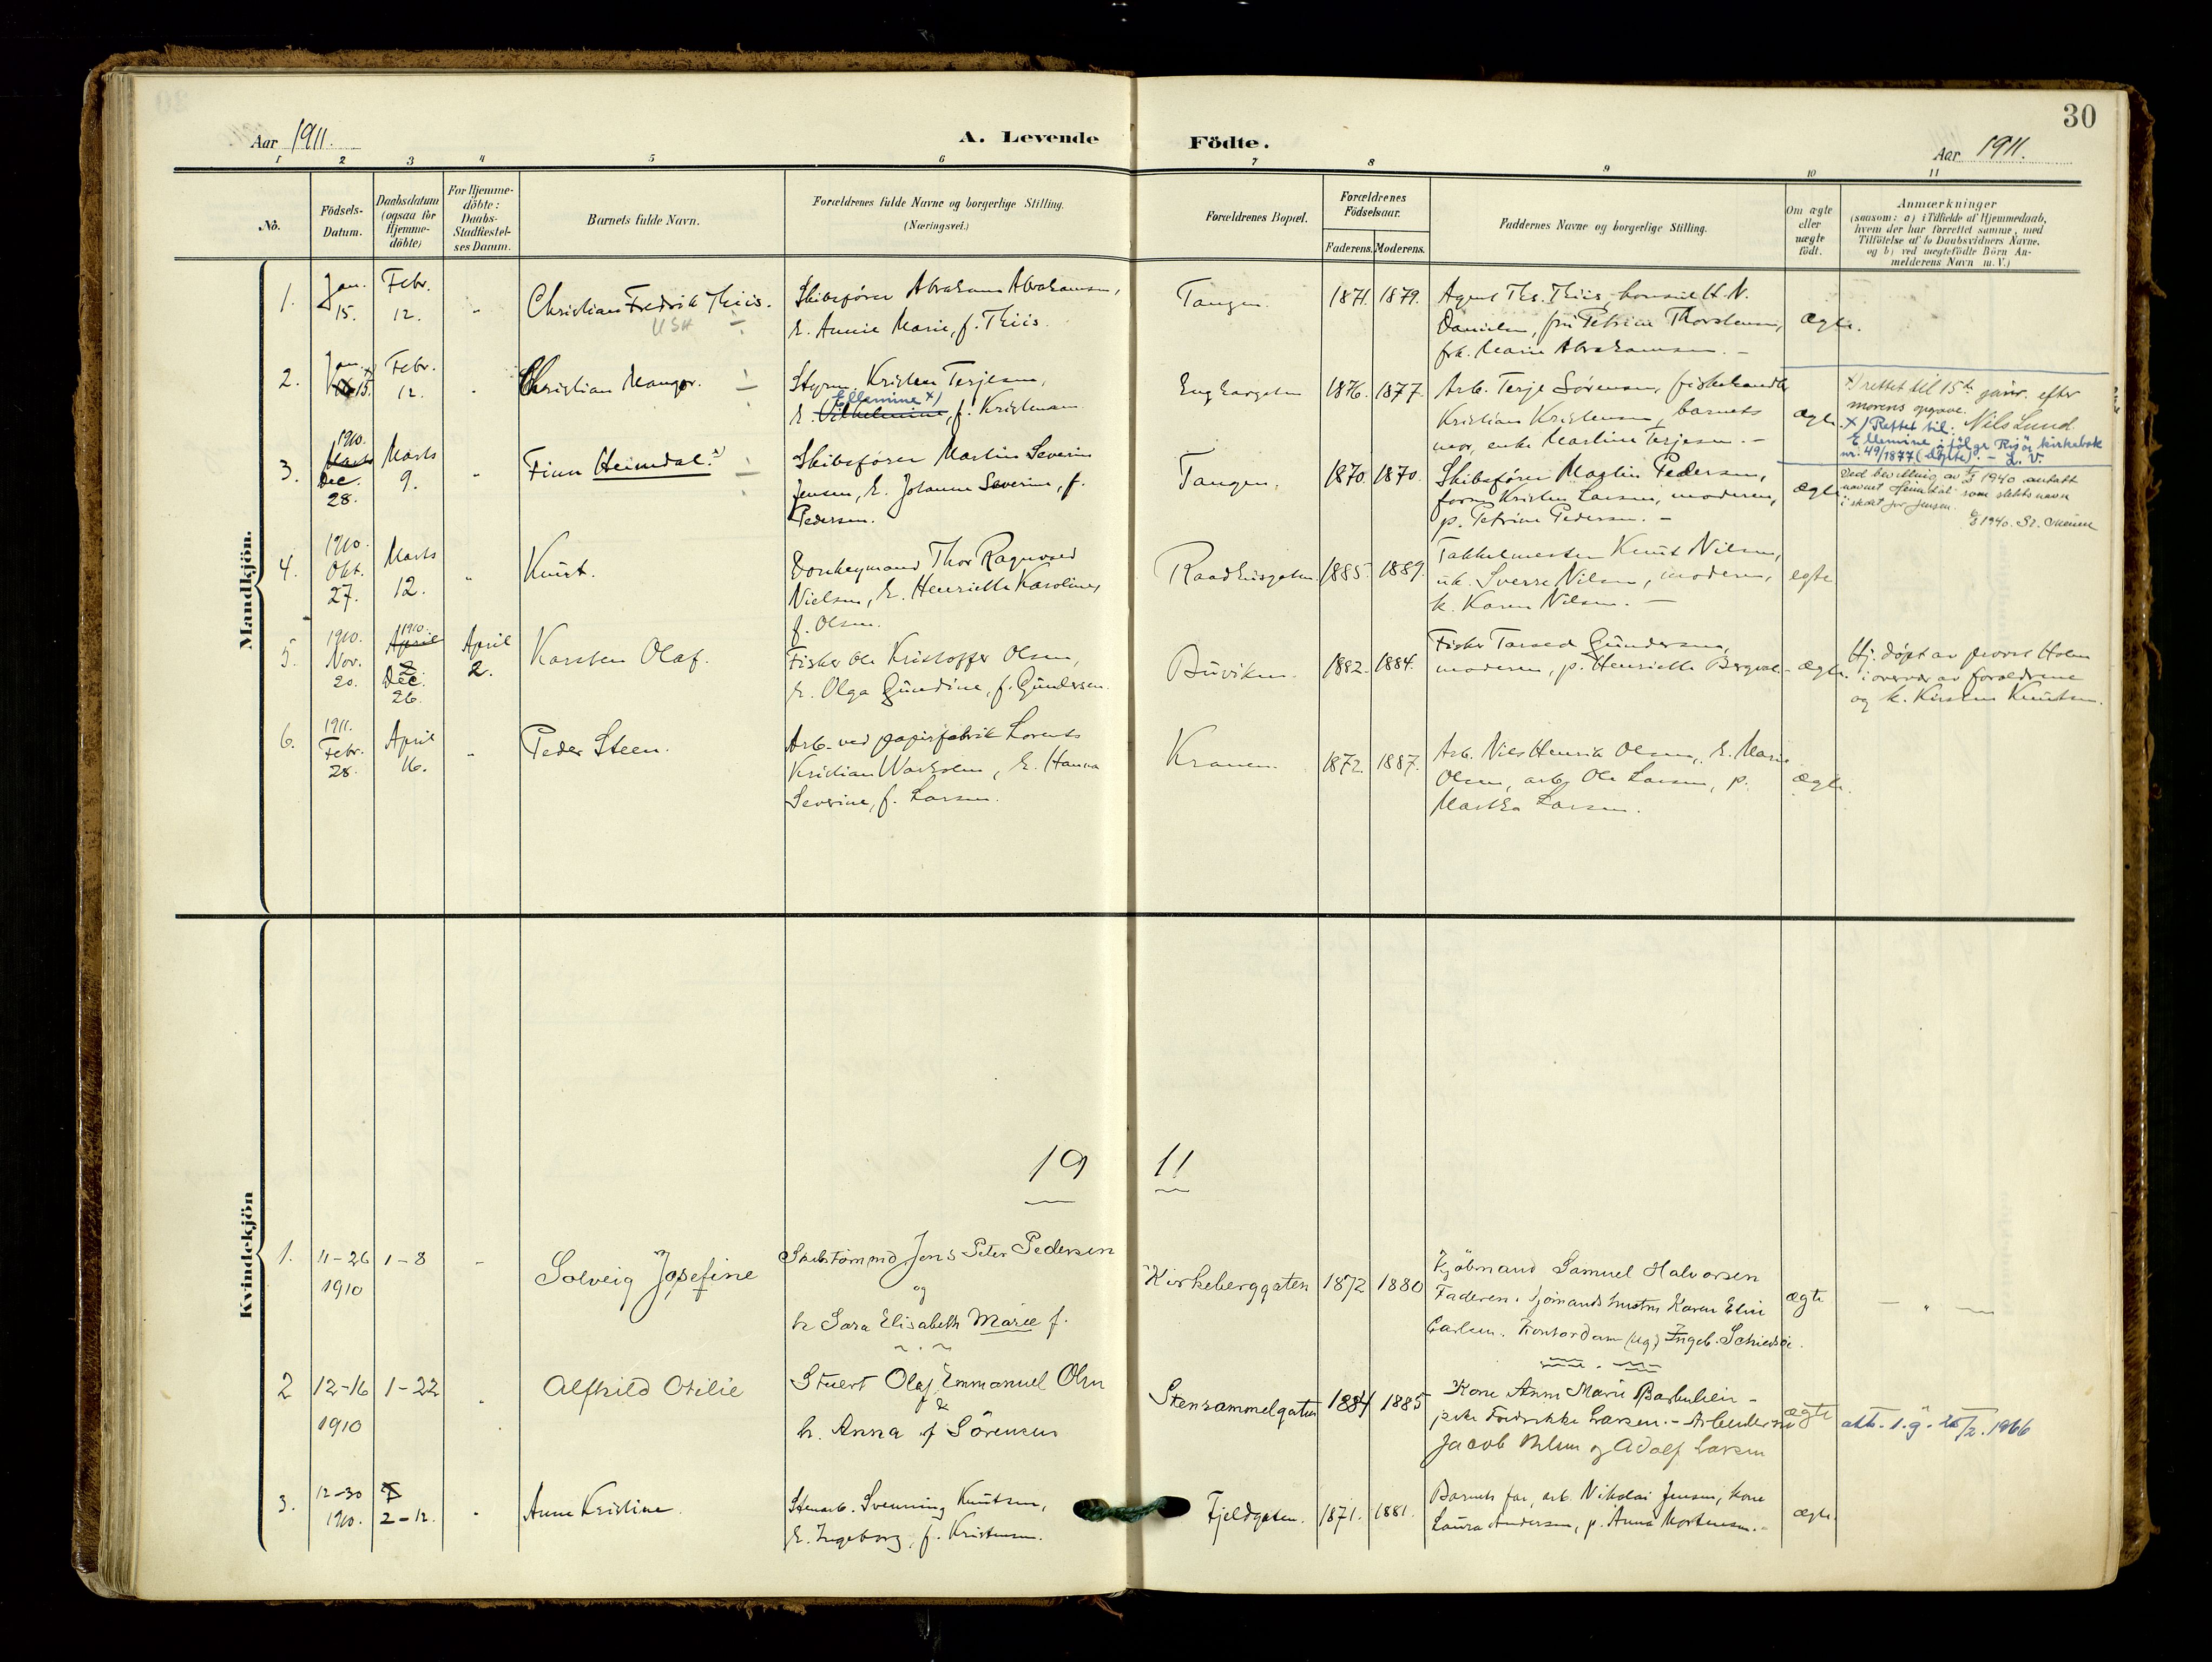 30
Aar 1911.
A. Levende Födte.
Aar 1911.
1 2 3 4 5 6 7 8 9 10 11
No.
Födsels-
Datum.
Daabsdatum
(ogsaa for
Hjemme-
döbte)
For Hjemme-
döbte:
Daabs-
Stadfæstel-
ses Datum.
Barnets fulde Navn.
Forældrenes fulde Navne og borgerlige Stilling.
(Næringsvei.)
Forældrenes Bopæl.
Forældrenes
Födselsaar.
Faderens. Moderens.
Faddernes Navne og borgerlige Stilling.
Om ægte
eller
uægte
födt.
Anmærkninger
(saasom: a) i Tilfælde af Hjemmedaab,
hvem der har forrettet samme, med
Tilföielse af to Daabsvidners Navne.
og b) ved uægtefödte Börn An-
melderens Navn m. V.)
Mandkjön.
1.
Jan.
15.
Febr.
12.
Christian Fredrik Thiis.
USA
Skibsfører Abraham Abrahamsen,
h. Annie Marie, f. Thiis.
Tangen.
1871. 1879.
Agent Ths. Thiis, konsul H. N.
Danielsen, fru Petrine Thorstensen,
frk. Marie Abrahamsen. -
ægte.
2.
Jan. x)
15.
Febr.
12.
Christian Mangor.
Styrm. Kristen Terjesen,
Ellemine x)
h. Vilhelmine, f. Kristensen
Enghavgaten
1876. 1877.
Arb. Terje Sørensen, fiskehandler
Kristian Kristensen, barnets
mor, enke Martine Terjesen. -
ægte.
x) rettet til 15de januar. efter
morens opgave. Nils Lund
x) Rettet til:
Ellemine ifölge Risör kirkebok
nr. 49/1877 (döpte). - L. V.
3.
1910.
Marts
Dec.
28.
Marts
9.
Finn Heimdal. x)
Skibsfører Martin Severin
Jensen, h. Johanne Severine, f.
Pedersen.
Tangen.
1870. 1870.
Skibsfører Martin Pedersen,
Kristen Larsen, moderen,
p. Petrine Pedersen. -
ægte
Ved bevilling av 1940 antatt
navnet Heimdal som slektsnavn
i stedet for Jensen.
1940.
4.
1910.
Okt.
27.
Marts
12.
Knut.
Donkeymand Thor Ragnvald
Nielsen, h. Henriette Karoline,
f. Olsen.
Raadhusgaten
1885. 1889.
Takkelmester Knut Nilsen,
uk. Sverre Nilsen, moderen,
k. Karen Nilsen. -
egte
5.
1910.
Nov.
20.
1910.
April
2
Dec.
26.
April
2.
Karsten Olaf.
Fisker Ole Kristoffer Olsen,
h. Olga Gundine, f. Gundersen.
Buviken.
1882. 1884.
Fisker Tarald Gundersen,
moderen, p. Henriette Bergvol -
ægte.
Hj. døpt av provst Holm
i overvær av forældrene
og k. Kirsten Knutsen.
6.
1911.
Febr.
28.
April
16.
Peder Steen.
Arb. ved papirfabrik Lorents
Kristian Warholm, h. Hanna
Severine, f. Larsen.
Kranen.
1872. 1887.
Arb. Nils Henrik Olsen, h. Marie
Olsen, arb. Ole Larsen, p.
Martha Larsen.
ægte.
19 11
Kvindekjön
1.
11-26
1910
1-8
Solveig Josefine
Skibstømmd Jens Peter Pedersen
og
h Sara Elisabeth Marie f.
Kirkeberggaten
1872 1880
Kjöbmand Samuel Halvorsen
Faderen. Sjømandshustru Karen Elise
Carlsen. Kontordam (ug) Ingeb.
ægte
2
12-16
1910
1-22
Alfhild Otilie
Stuert Olaf Emmanuel Olsen
&
h. Anna f Sörensen
Stensammelgaten
1884 1885
Kone Anne Marie -
pike Fredrikke Larsen. -
Jacob Nilsen og Adolf Larsen
ægte
att. 1.g. 1966
3.
12-30
1910.
2-12.
Anne Kristine.
Stenarb. Svenning Knutsen,
h. Ingeborg, f. Kristensen.
Fjeldgaten.
1871. 1881.
Barnets far, arb. Nikolai Jensen, kone
Laura Andersen, p. Anna Mortensen. -
ægte.